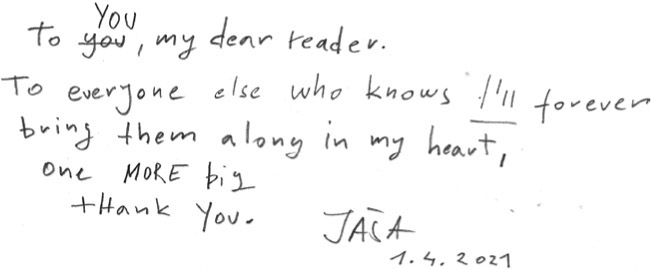 YOU
To you, my dear reader.
To everyone else who knows I'll forever
bring them along in my heart,
one MORE big
tHank You.
JAŠA
1.4.2021